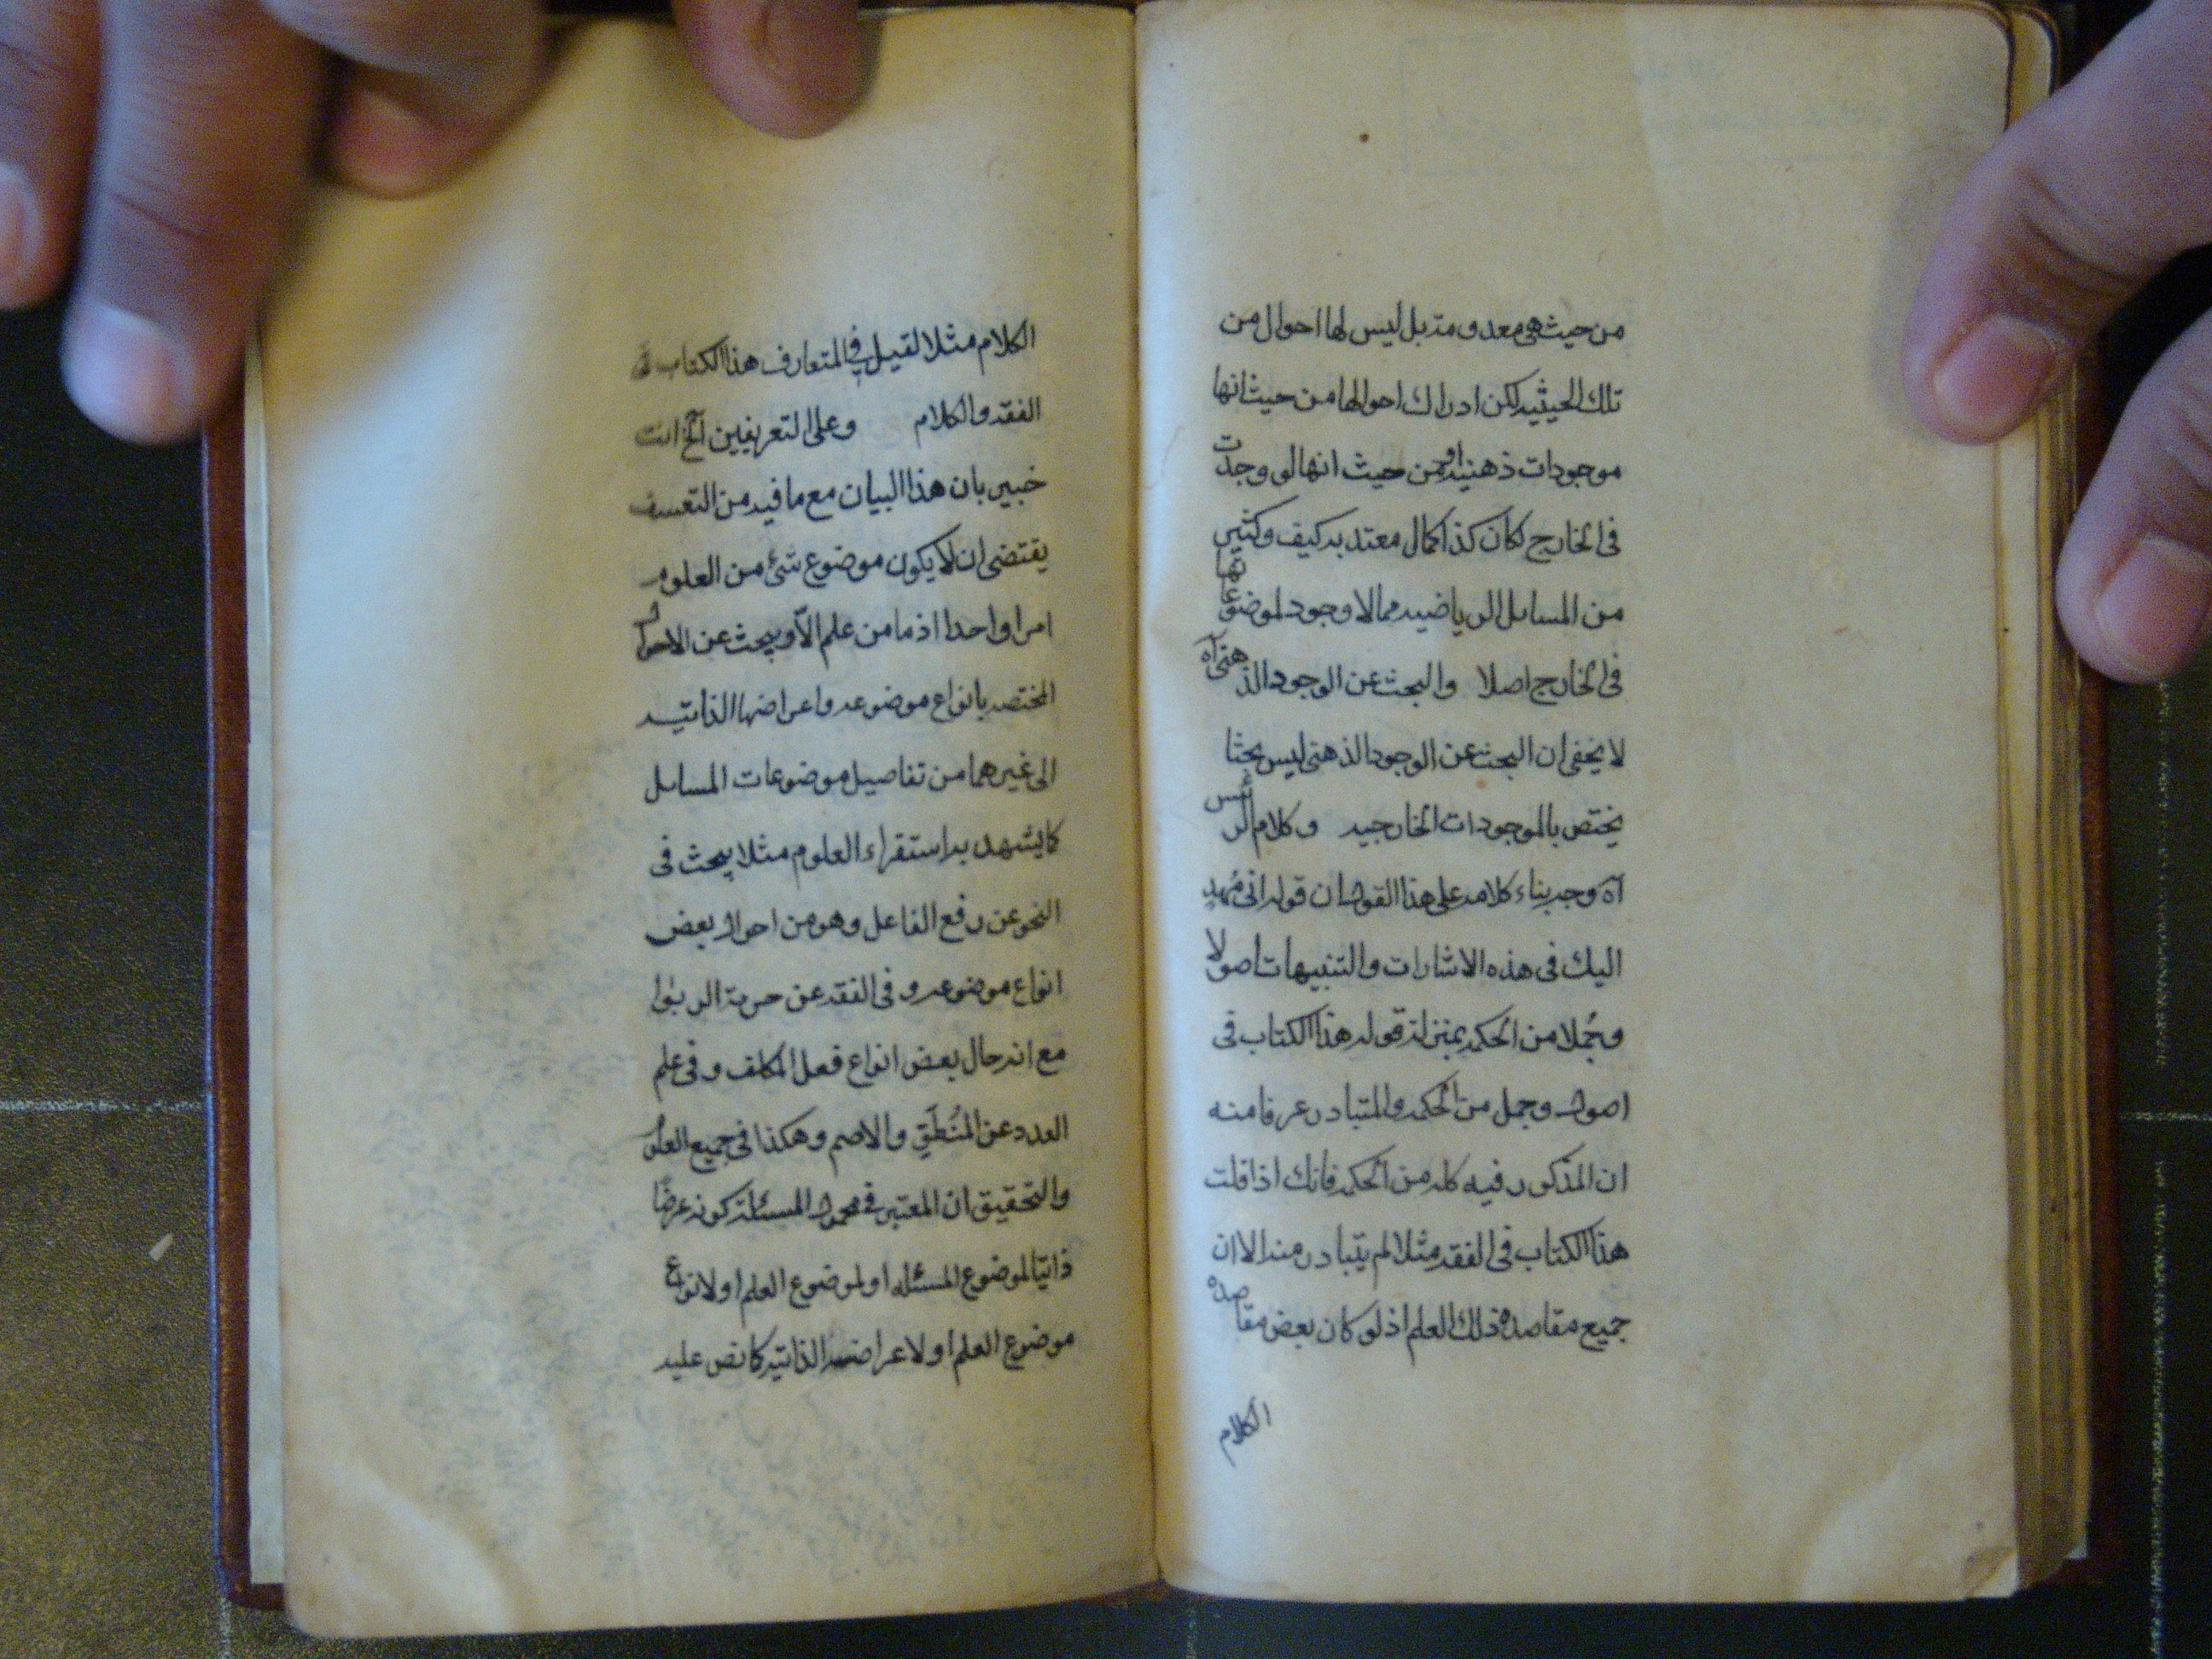 من حيث هى معدومة بل ليس لها احوال من
تلك الحيثية لكن ادراك احوالها من حيث انها
موجودات ذهنية او من حيث انها لو وجدت
فى الخارج لكان كذا كمال معتد به كيف وكثير
من المسايل الرياضية مما لا وجود لموضوعاتها
فى الخارج اصلا والبحث عن الوجود الذهنى آه
لا يخفى ان البحث عن الوجود الذهنى ليس بحثا
يختص بالموجودات الخارجية وكلام الرئيس
آه وجه بناء كلامه على هذا القول ان قوله انى مهد
اليك فى هذه الاشارات والتنبيهات اصولا
وجُملا من الحكمة بمنزلة قوله هذا الكتاب فى
اصول وجمل من الحكمة والمتبادر عرفا منه
ان المذكور فيه كله من الحكمة فانك اذا قلت
هذا الكتاب فى الفقه مثلا لم يتبادر منه الا ان
جميع مقاصده ذلك العلم اذ لو كان بعض مقاصده
الكلام
الكلام مثلا لقيل فى المتعارف هذا الكتاب فى
الفقه والكلام وعلى التعريفين آلخ انت
خبير بان هذا البيان مع ما فيه من التعسف
يقتضى ان لا يكون موضوع شئ من العلوم
امرا واحدا اذ ما من علم الّا ويبحث عن الاحوال
المختصه بانواع موضوعه واعراضها الذاتيه
الى غيرهما من تفاصيل موضوعات المسايل
كما يشهد به استقراء العلوم مثلا يبحث فى
النحو عن رفع الفاعل وهو من احوال بعض
انواع موضوعه و فى الفقه عن حرمة الربوا
مع انه حال بعض انواع فعل المكلف و فى علم
العدد عن المُنطَق والاصم وهكذا فى جميع العلوم
والتحقيق ان المعتبر فى محمول المسئلة كونه عرضًا
ذاتيّا لموضوع المسئله او لموضوع العلم او لانواع
موضوع العلم او لاعراضه الذاتيه كما نص عليه